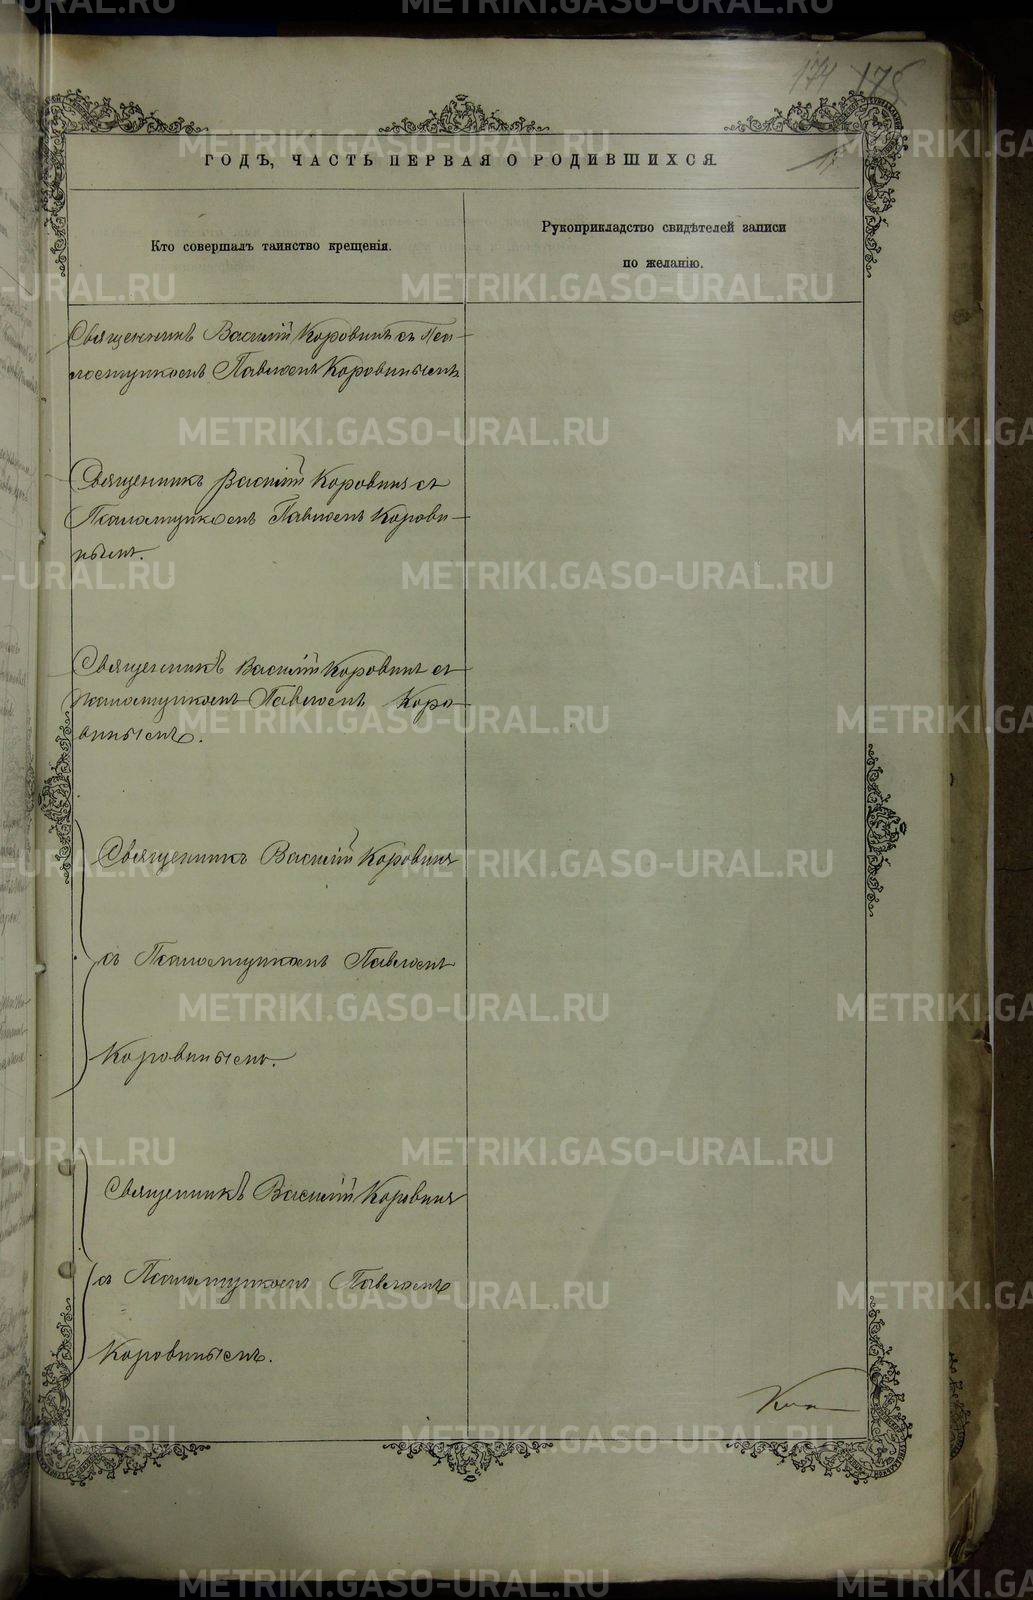 174 175
ГОДЪ, ЧАСТЬ ПЕРВАЯ О РОДИВШИХСЯ.
Кто совершалъ таинство крещенія.
Рукоприкладство свидѣтелей записи
по желанію.
Священникъ Василій Коровинъ съ Пса-
ломщикомъ Павломъ Коровинымъ
Священникъ Василій Коровинъ съ
Псаломщикомъ Павломъ Корови-
нымъ.
Священникъ Василій Коровинъ съ
псаломщикомъ Павломъ Коро-
винымъ.
Священникъ Василій Коровинъ
съ Псаломщикомъ Павломъ
Коровинымъ.
Священникъ Василій Коровинъ
съ Псаломщикомъ Павломъ
Коровинымъ.
METRIKI.GASO-URAL.RU